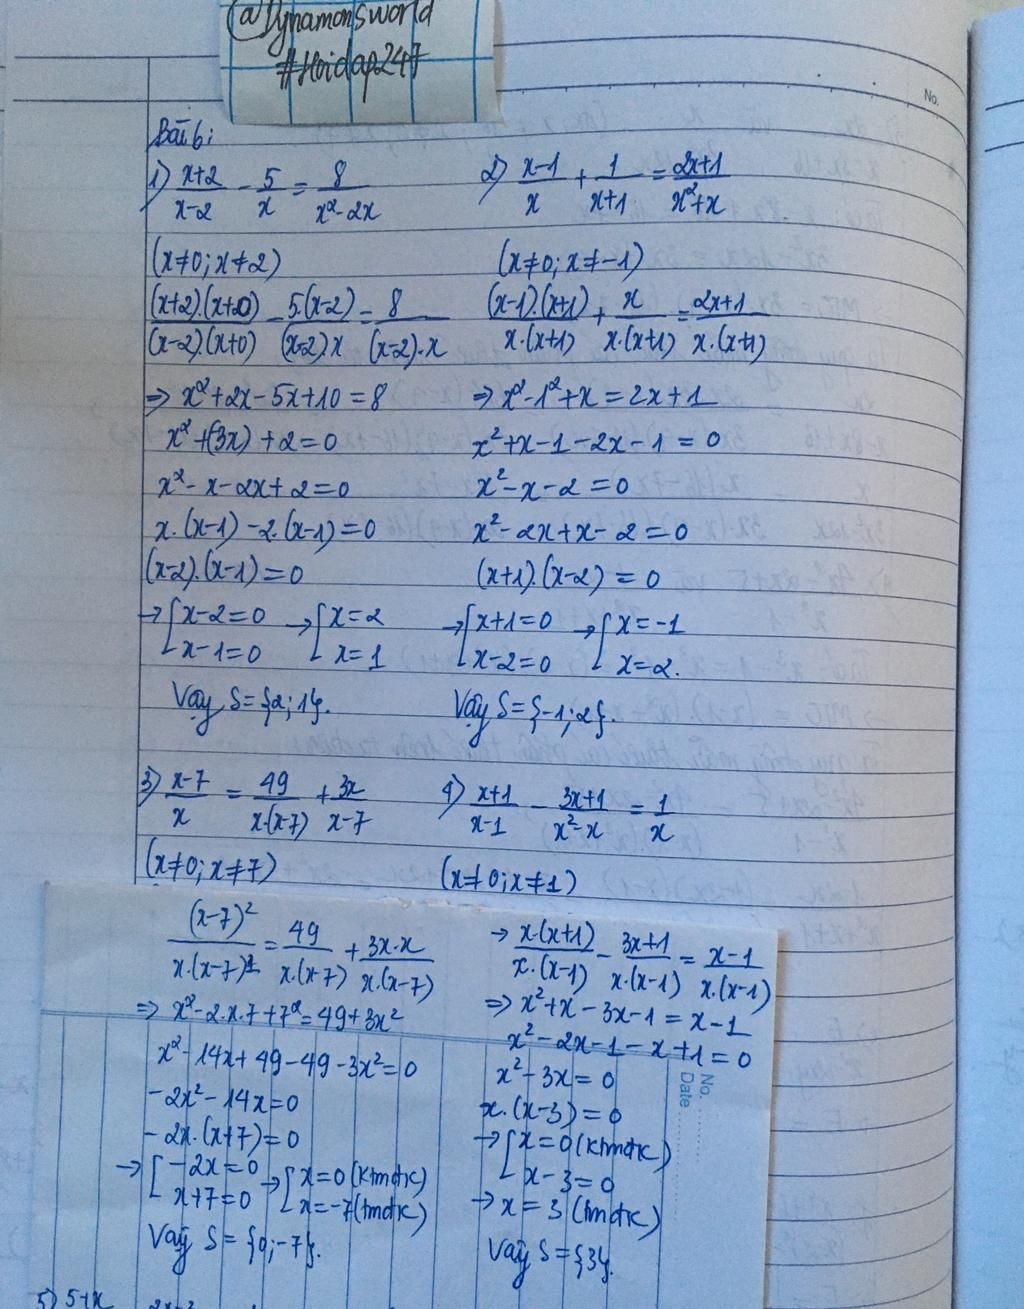 @Dynamonsworld
#Hoidap247
No.
Bài 6:
1) \frac{x+2}{x-2} - \frac{5}{x} = \frac{8}{x²-2x}
(x≠0; x≠2)
\frac{(x+2).(x+0)}{(x-2).(x+0)} - \frac{5.(x-2)}{(x-2).x} = \frac{8}{(x-2).x}
⇒ x²+2x-5x+10=8
x²+(-3x)+2=0
x²-x-2x+2=0
x.(x-1)-2.(x-1)=0
(x-2).(x-1)=0
→ [x-2=0 → [x=2
x-1=0 x=1
Vậy S={2;1}.
2) \frac{x-1}{x} + \frac{1}{x+1} = \frac{2x+1}{x²+x}
(x≠0; x≠-1)
\frac{(x-1).(x+1)}{x.(x+1)} + \frac{x}{x.(x+1)} = \frac{2x+1}{x.(x+1)}
⇒ x²-1²+x=2x+1
x²+x-1-2x-1=0
x²-x-2=0
x²-2x+x-2=0
(x+1).(x-2)=0
→ [x+1=0 → [x=-1
x-2=0 x=2.
Vậy S={-1;2}.
3) \frac{x-7}{x} = \frac{49}{x.(x-7)} + \frac{3x}{x-7}
(x≠0; x≠7)
\frac{(x-7)²}{x.(x-7)} = \frac{49}{x.(x-7)} + \frac{3x.x}{x.(x-7)}
⇒ x²-2.x.7+7²=49+3x²
x²-14x+49-49-3x²=0
-2x²-14x=0
-2x.(x+7)=0
→ [-2x=0 → [x=0 (ktmđk)
x+7=0 x=-7 (tmđk)
Vậy S={0;-7}.
4) \frac{x+1}{x-1} - \frac{3x+1}{x²-x} = \frac{1}{x}
(x≠0; x≠1)
→ \frac{x.(x+1)}{x.(x-1)} - \frac{3x+1}{x.(x-1)} = \frac{x-1}{x.(x-1)}
⇒ x²+x-3x-1=x-1
x²-2x-1-x+1=0
x²-3x=0
x.(x-3)=0
→ [x=0 (ktmđk)
x-3=0
→ x=3 (tmđk)
Vậy S={3}.
No.
Date
5) 5+x